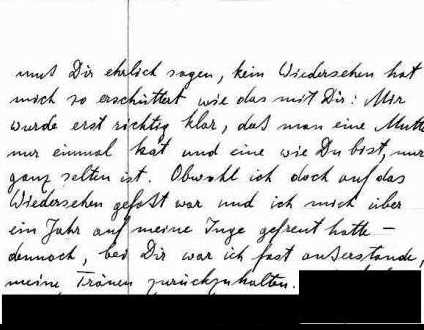 muß Dir ehrlich sagen, kein Wiedersehen hat
mich so erschüttert wie das mit Dir: Mir
wurde erst richtig klar, daß man eine Mutte
nur einmal hat und eine wie Du bist, nur
ganz selten ist. Obwohl ich doch auf das
Wiedersehen gefaßt war und ich mich über
ein Jahr auf meine Inge gefreut hatte –
dennoch, bei Dir war ich fast außerstande,
meine Tränen zurückzuhalten.